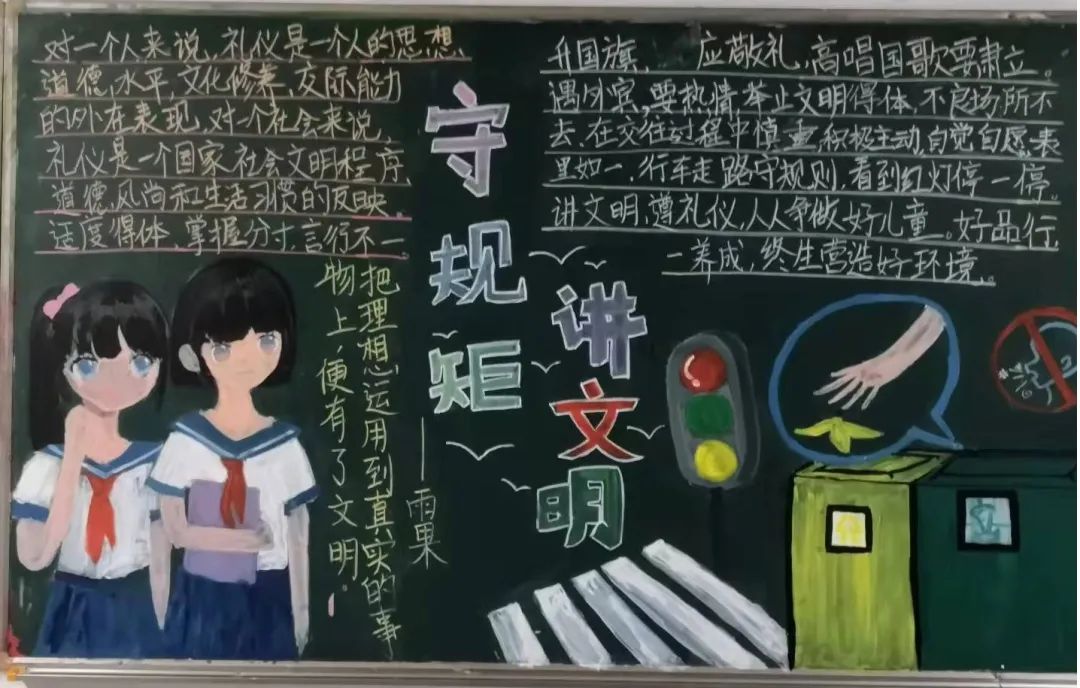 对一个人来说,礼仪是一个人的思想
道德,水平,文化修养,交际能力
的外在表现,对一个社会来说,
礼仪是一个国家社会文明程序,
道德风尚和生活习惯的反映。
适度得体,掌握分寸,言行不一
守规矩
讲文明
把理想运用到真实的事
物上,便有了文明。
——雨果
升国旗, 应敬礼,高唱国歌要肃立。
遇外宾,要热情,举止文明得体,不良场所不
去,在交往过程中慎重,积极主动,自觉自愿,表
里如一,行车走路守规则,看到红灯停一停。
讲文明,遵礼仪,人人争做好儿童。好品行
一养成,终生营造好环境。